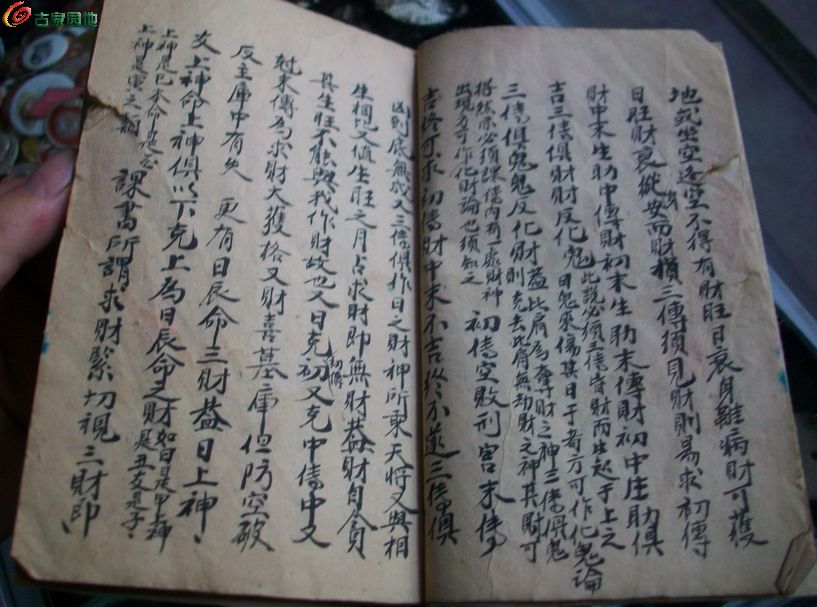 古泉园地
地或坐空逢空不得有財旺日衰身雖病財可獲
日旺財衰縱安而財横三傳須見財則易求初傳
財中末生助中傳財初末生助末傳財初中生助俱
吉三傳俱財財反化鬼此説必須三傳皆財而生起干上之
日鬼來傷其日干者方可作化鬼論
三傳俱鬼鬼反化財蓋此肩爲奪財之神三傳俱鬼
則克去比肩無劫財之神其財可
得然亦必須課傳内有一處財神
出現方可作化財論也須知之
初傳空敗刑害末傳
吉終可求初傳財中末不吉終不遂三傳俱
凶到底無成又三傳俱作日之財神所乘天將又與相
生相又值生旺之月占求財即無財蓋財自貪
其生旺不能與我作財故也又日克初又克中傳中又
初傳
尅末傳爲求財大獲格又財喜墓庫但防空破
反主庫中有失 更有日辰命三財蓋日上神
支上神命上神俱以下克上爲日辰命之財如日是甲上神
是丑支是子
上神是巳本命是
上神是寅之類
課書所謂求財緊切視三財即